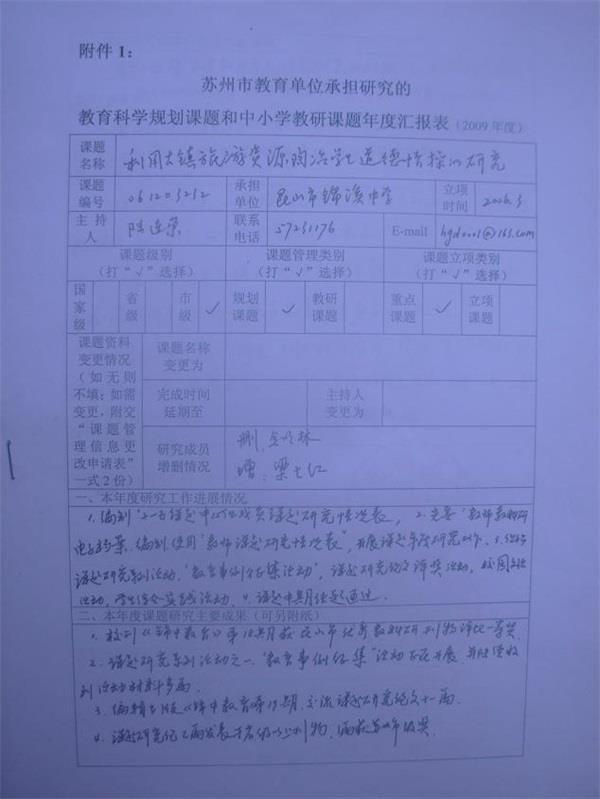 附件1：
苏州市教育单位承担研究的
教育科学规划课题和中小学教研课题年度汇报表（2009 年度）
课题名称 利用古镇旅游资源陶冶学生道德情操的研究
课题编号 061203252 承担单位 昆山市锦溪中学 立项时间 2006.5
主持人 陆连荣 联系电话 57231176 E-mail
课题级别（打“√”选择） 课题管理类别（打“√”选择） 课题立项类别（打“√”选择）
国家级 省级 市级 √ 规划课题 √ 教研课题 重点课题 √ 立项课题
课题资料变更情况（如无则不填；如需变更，附交“课题管理信息更改申请表”一式2份）
课题名称变更为
完成时间延期至 主持人变更为
研究成员增删情况 删： 增：
一、本年度研究工作进展情况
1. 编制 课题中心组成员课题研究情况表，2. 完善“教师教科研
电子档案，编制使用“教师课题研究情况表”，开展课题年度研究工作、3.
课题研究系列活动，“教育事例征集活动”，课题研究论文评奖活动，
活动，学生综合实践活动，4. 课题中期评估通过.
二、本年度课题研究主要成果（可另附纸）
1. 校刊《锦中教育》第18期获昆山市优秀教科研刊物评比一等奖.
2. 课题研究系列活动之一“教育事例征集”活动正在开展，并陆续收
到活动材料多篇.
3. 编辑出版《锦中教育》第19期，交流课题研究论文十一篇.
4. 课题研究论文 发表于省级以上刊物， 获苏州市级奖.